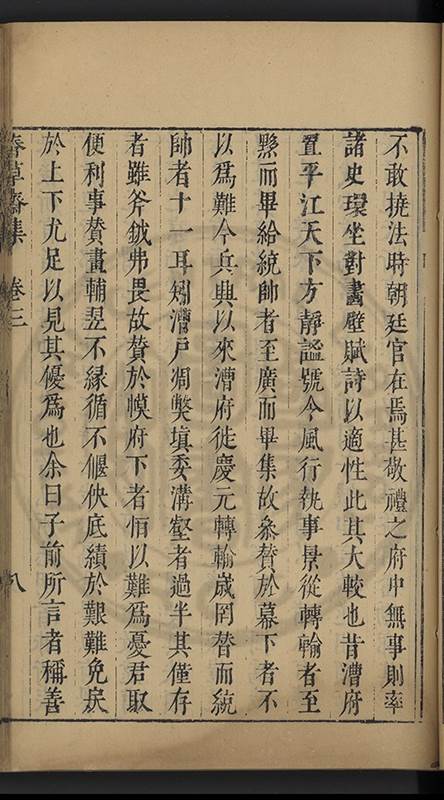 不敢撓法時朝廷官在焉甚敬禮之府中無事則率
諸史環坐對畵壁賦詩以適性此其大較也昔漕府
置平江天下方靜謐號令風行執事景從轉輸者至
縣而畢給統帥者至廣而畢集故叅贊於幕下者不
以爲難今兵興以來漕府徙慶元轉輸歲罔替而統
帥者十一耳矧漕戶凋獘填委溝壑者過半其僅存
者雖斧鉞弗畏故贊於幙府下者恒以難爲憂君取
便利事贊畫輔翌不緣循不偃佒底績於艱難免戾
於上下尤足以見其優爲也余曰子前所言者稱善
草齋集 卷三 八